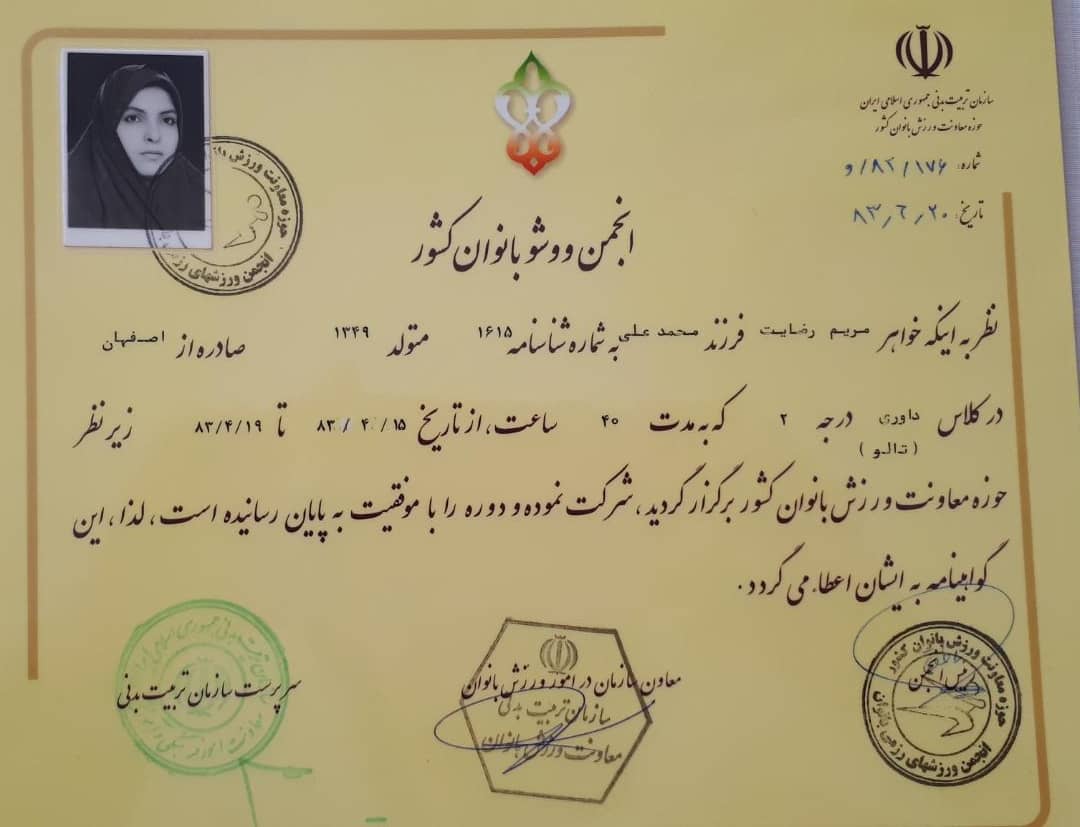 سازمان تربیت بدنی جمهوری اسلامی ایران
حوزه معاونت ورزش بانوان کشور
شماره: ۸۲/۱۷۶/و
تاریخ: ۸۳٫۶٫۲۰
انجمن ووشو بانوان کشور
نظر به اینکه خواهر مریم رضایت فرزند محمدعلی به شماره شناسنامه ۱۶۱۵ متولد ۱۳۴۹ صادره از اصفهان
در کلاس داوری درجه ۲ که به مدت ۴۰ ساعت، از تاریخ ۸۳/۴/۱۵ تا ۸۳/۴/۱۹ زیر نظر
(تالو)
حوزه معاونت ورزش بانوان کشور برگزار گردید، شرکت نموده و دوره را با موفقیت به پایان رسانیده است، لذا، این
گواهینامه به ایشان اعطاء می گردد.
رئیس انجمن
معاون سازمان در امور ورزش بانوان
سرپرست سازمان تربیت بدنی
حوزه معاونت ورزش بانوان کشور
انجمن ورزشهای رزمی بانوان
سازمان تربیت بدنی
معاونت ورزش بانوان
حوزه معاونت ورزش
انجمن ورزشهای